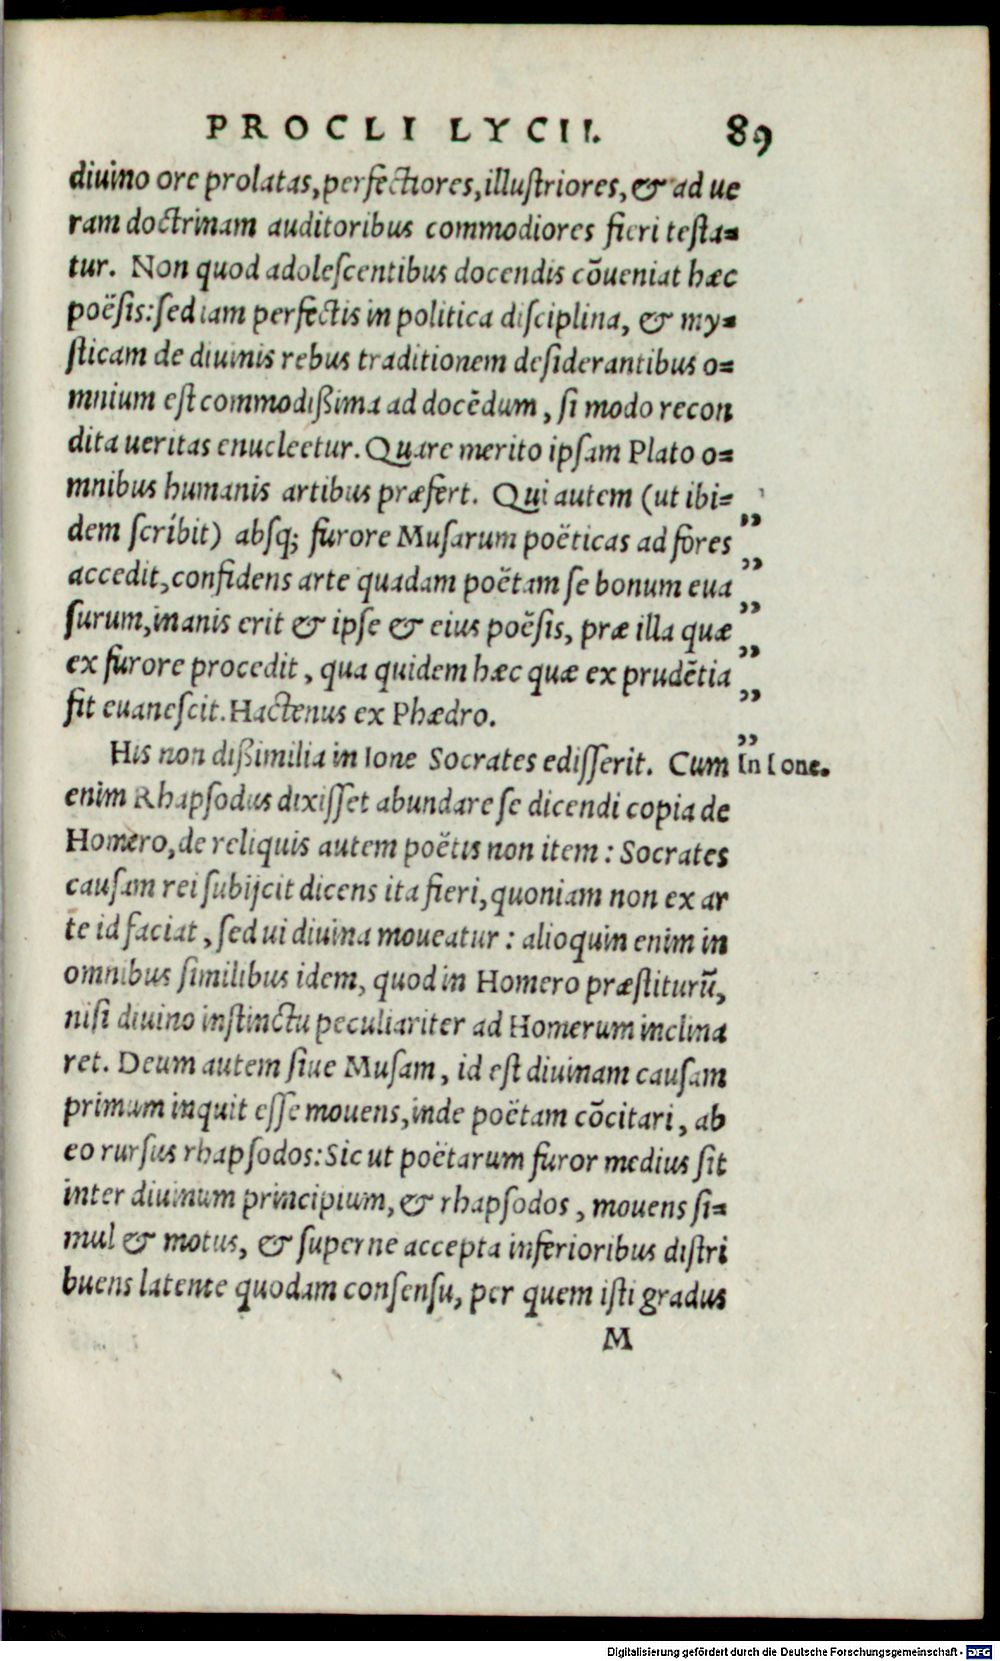 PROCLI LYCII. 89
diuino ore prolatas, perfectiores, illuſtriores, & ad ue
ram doctrinam auditoribus commodiores fieri teſta=
tur. Non quod adoleſcentibus docendis cōueniat hæc
poëſis: ſed iam perfectis in politica diſciplina, & my=
ſticam de diuinis rebus traditionem deſiderantibus o=
mnium eſt commodißima ad docēdum, ſi modo recon
dita ueritas enucleetur. Quare merito ipſam Plato o=
mnibus humanis artibus præfert. Qui autem (ut ibi=
dem ſcribit) abſq; furore Muſarum poëticas ad fores ”
accedit, confidens arte quadam poëtam ſe bonum eua ”
ſurum, inanis erit & ipſe & eius poëſis, præ illa quæ ”
ex furore procedit, qua quidem hæc quæ ex prudētia ”
fit euaneſcit. Hactenus ex Phædro. ”
”
His non dißimilia in Ione Socrates ediſſerit. Cum In Ione.
enim Rhapſodus dixiſſet abundare ſe dicendi copia de
Homero, de reliquis autem poëtis non item: Socrates
cauſam rei ſubijcit dicens ita fieri, quoniam non ex ar
te id faciat, ſed ui diuina moueatur: alioquin enim in
omnibus ſimilibus idem, quod in Homero præſtiturū,
niſi diuino inſtinctu peculiariter ad Homerum inclina
ret. Deum autem ſiue Muſam, id eſt diuinam cauſam
primum inquit eſſe mouens, inde poëtam cōcitari, ab
eo rurſus rhapſodos: Sic ut poëtarum furor medius ſit
inter diuinum principium, & rhapſodos, mouens ſi=
mul & motus, & ſuperne accepta inferioribus diſtri
buens latente quodam conſenſu, per quem iſti gradus
M
Digitalisierung gefördert durch die Deutsche Forschungsgemeinschaft - DFG